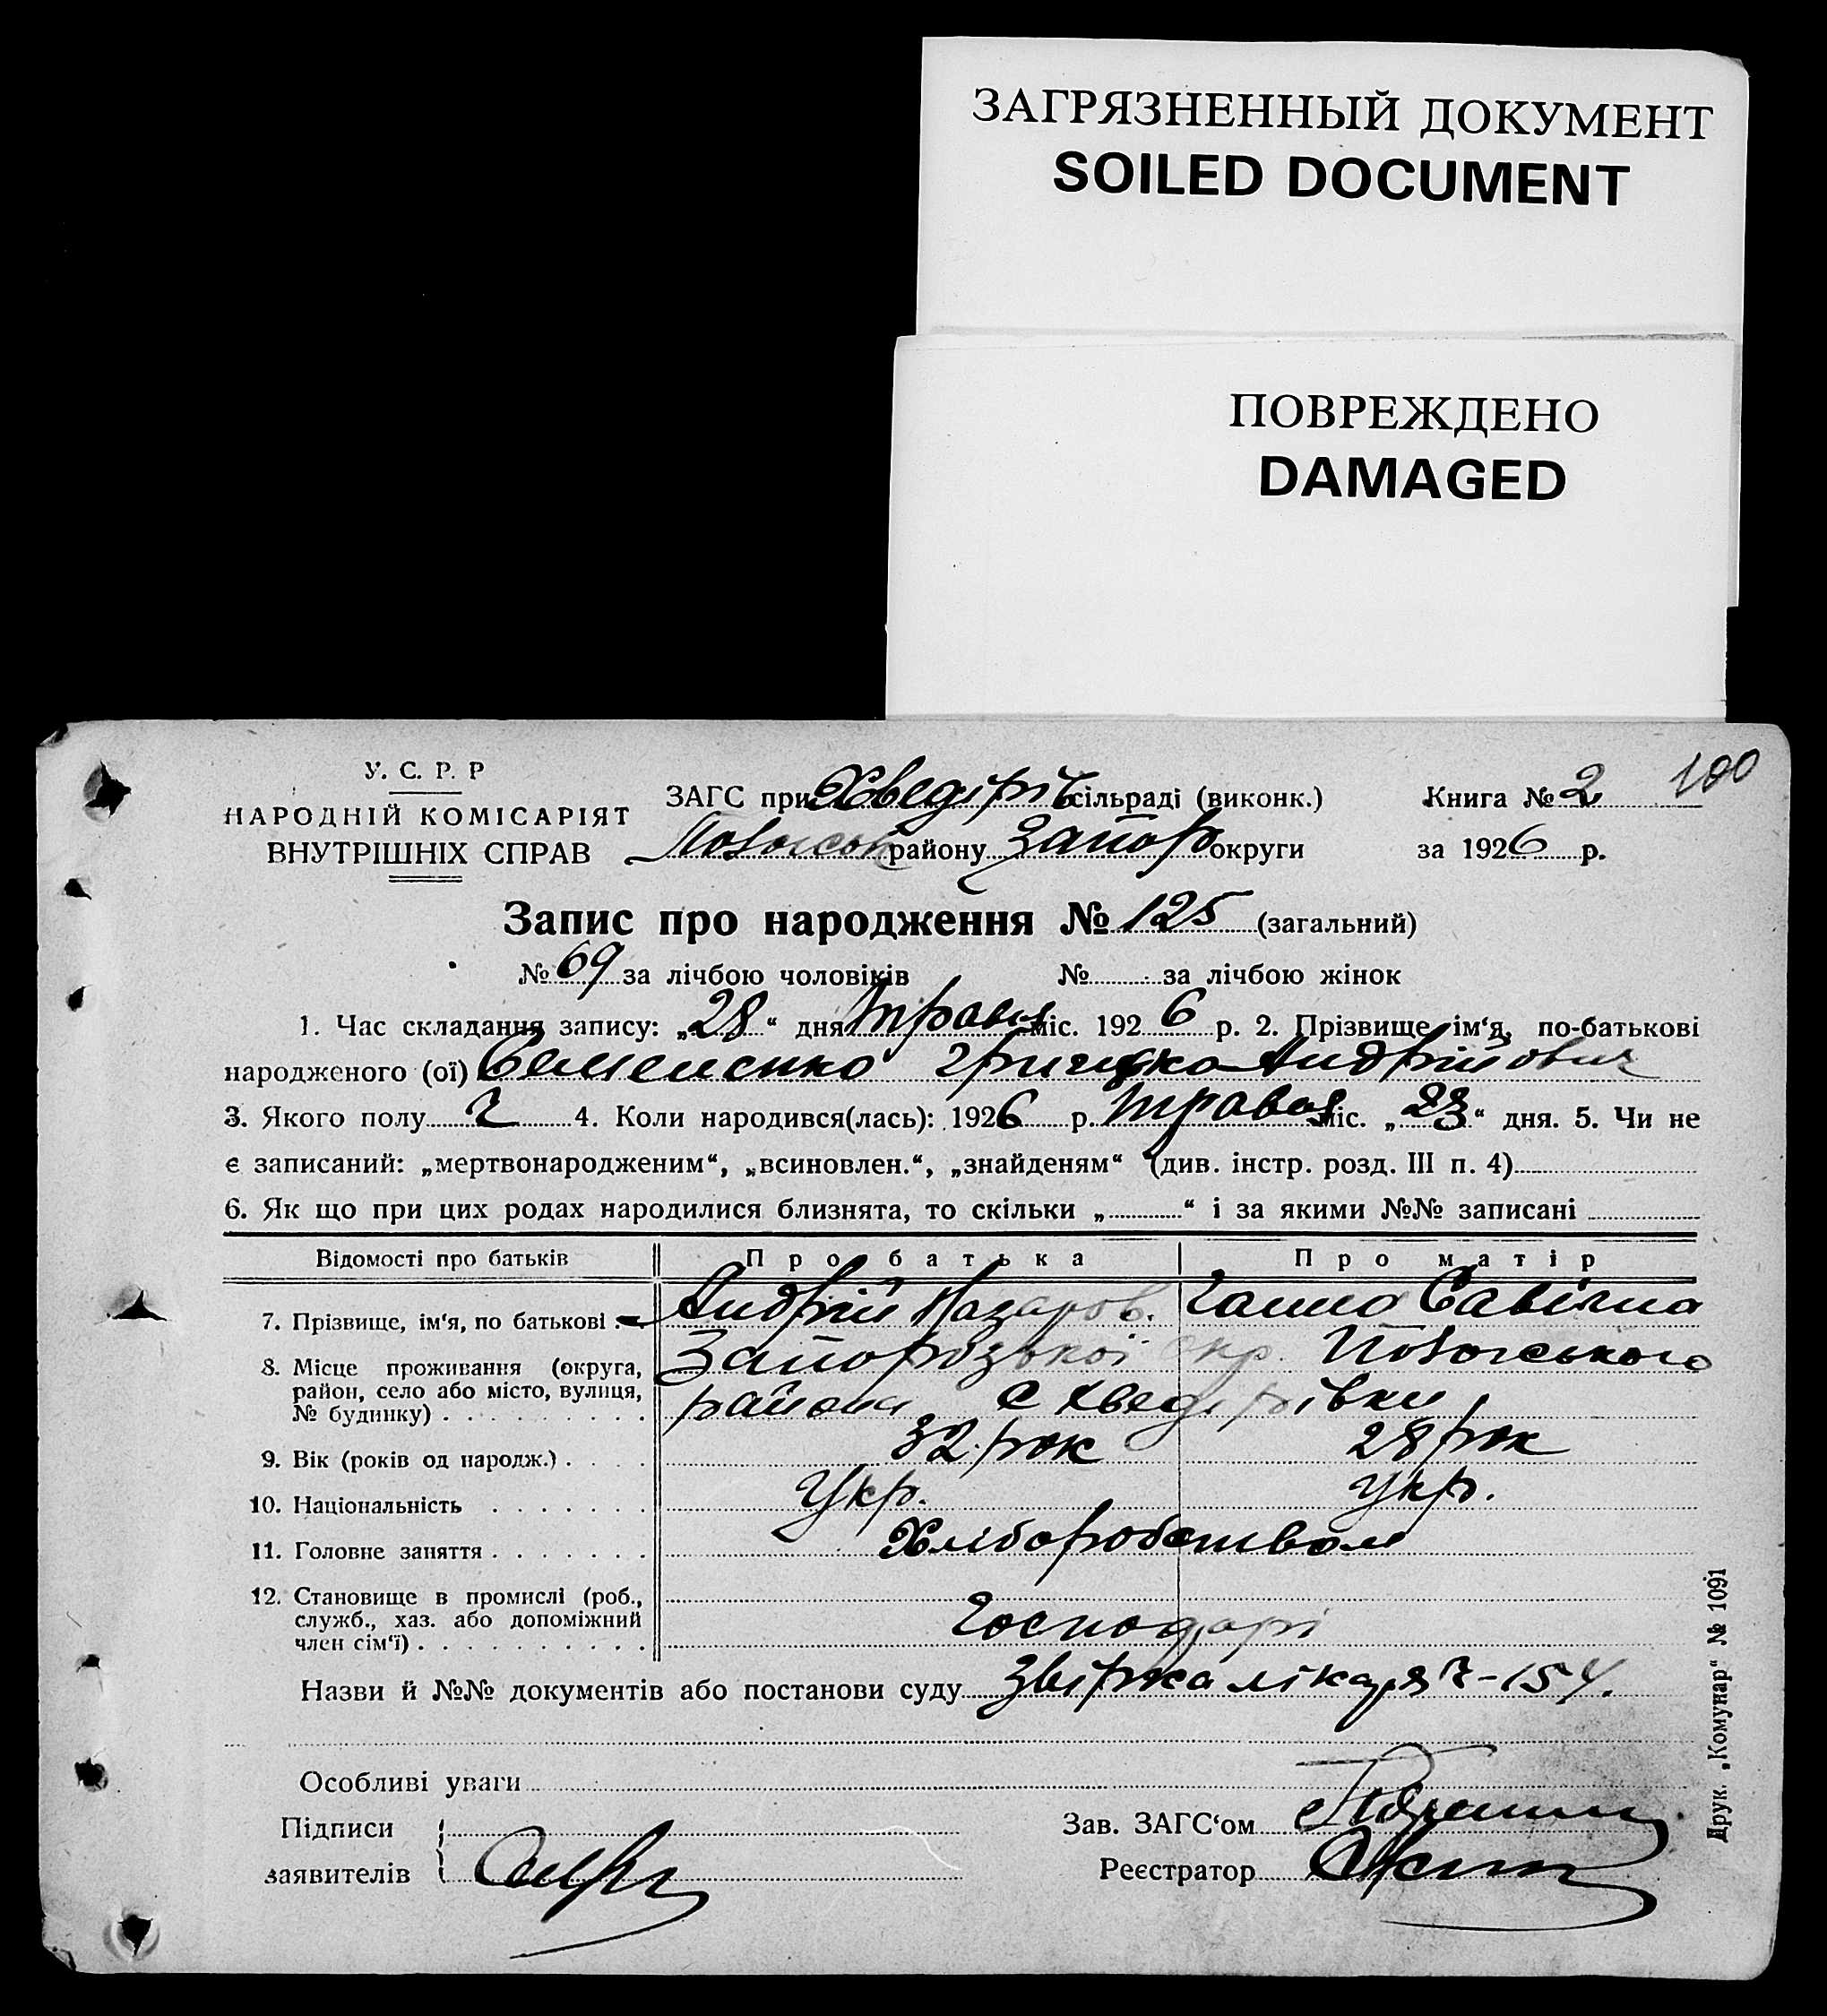 ЗАГРЯЗНЕННЫЙ ДОКУМЕНТ
SOILED DOCUMENT
ПОВРЕЖДЕНО
DAMAGED
100
У. С. Р. Р
НАРОДНІЙ КОМІСАРІЯТ
ВНУТРІШНІХ СПРАВ
ЗАГС при Хведірів сільраді (виконк.) Книга № 2
району Запор округи за 1926 р.
Запис про народження № 125 (загальний)
№ 69 за лічбою чоловіків № за лічбою жінок
1. Час складання запису: „28“ дня Травня міс. 1926 р. 2. Прізвище, ім‘я, по-батькові
народженого (ої) Семененко Грицько Андрійович
3. Якого полу Ч 4. Коли народився(лась): 1926 р. Травня міс. „23“ дня. 5. Чи не
є записаний: „мертвонародженим“, „всиновлен.“, „знайденям“ (див. інстр. розд. III п. 4)
6. Як що при цих родах народилися близнята, то скільки „ “ і за якими №№ записані
Відомості про батьків Про батька Про матір
7. Прізвище, ім‘я, по батькові Андрій Назаров. Ганна Савівна
8. Місце проживання (округа, район, село або місто, вулиця, № будинку) Запорозької окр.
района с Хведірівки
9. Вік (років од народж.) 32 рок 28 рок
10. Національність Укр. Укр.
11. Головне заняття Хліборобством
12. Становище в промислі (роб., служб., хаз. або допоміжний член сім‘ї) Господарі
Назви й №№ документів або постанови суду лікаря 7-154.
Особливі уваги
Підписи
заявителів
Зав. ЗАГС‘ом
Реєстратор
Друк. „Комунар“ № 1091